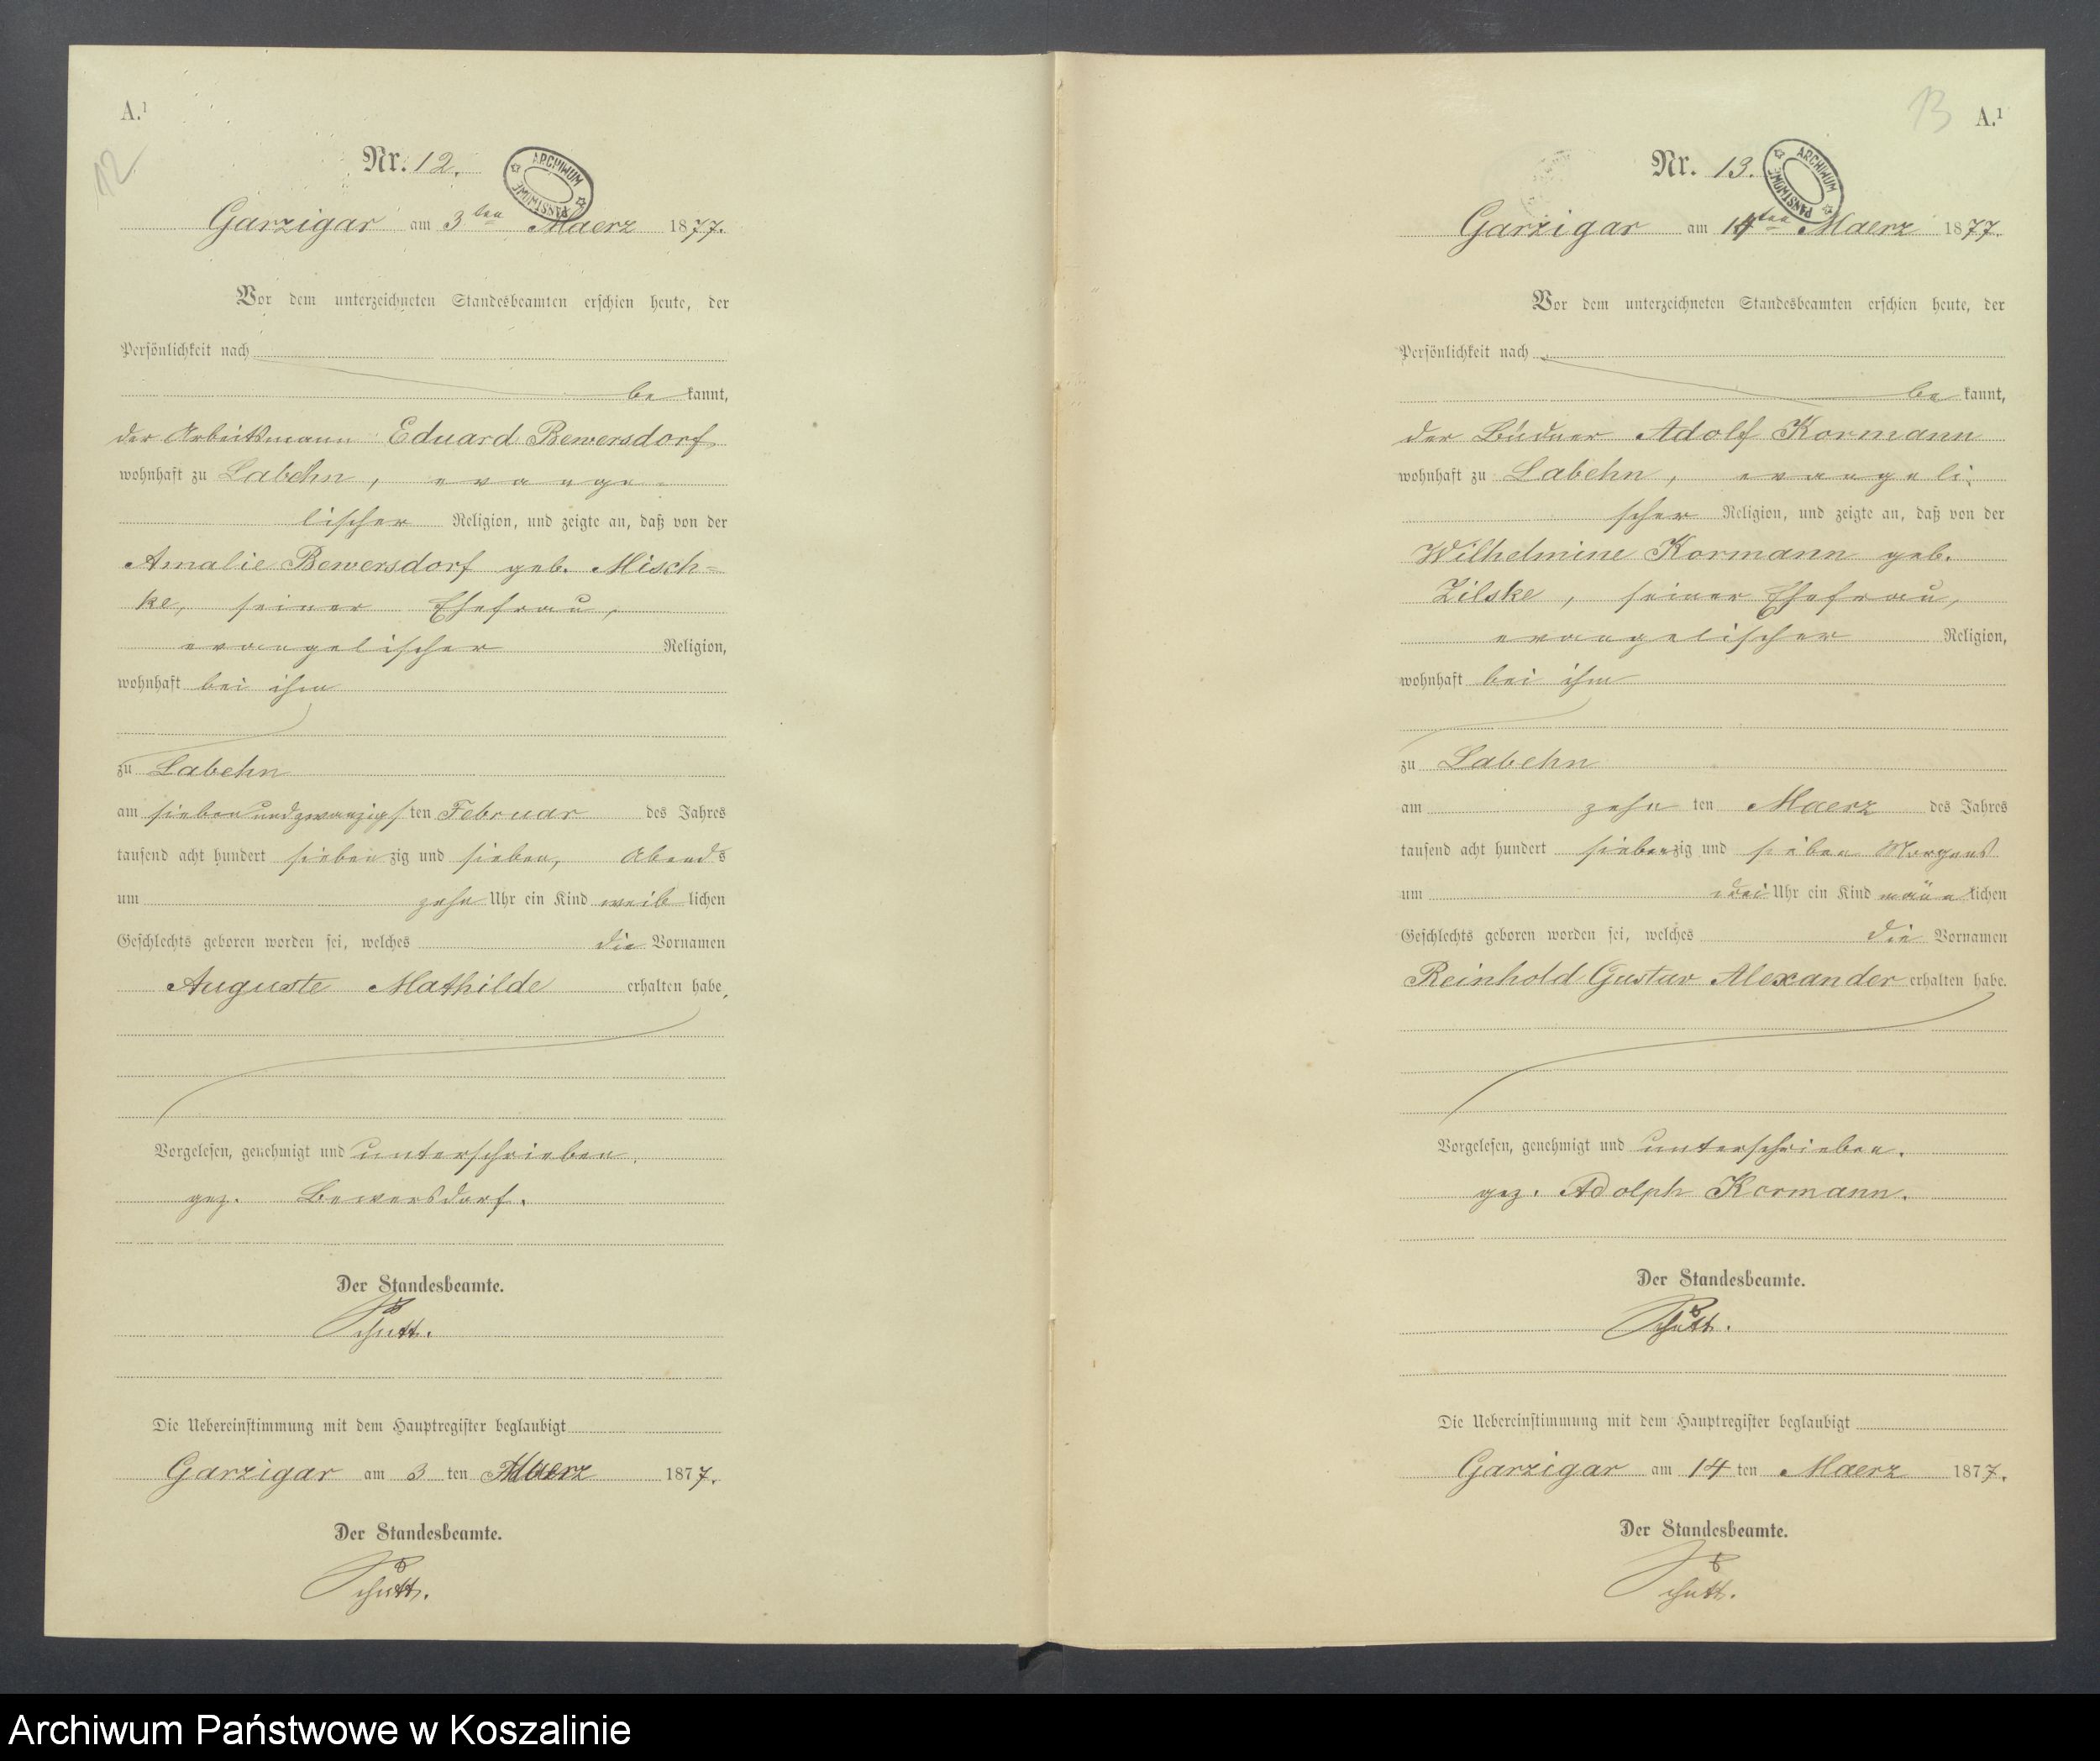 A.¹
12
Nr. 12.
ARCHIWUM PAŃSTWOWE
Garzigar am 3ten Maerz 1877.
Vor dem unterzeichneten Standesbeamten erschien heute, der
Persönlichkeit nach
be kannt,
der Arbeitsmann Eduard Bewersdorf
wohnhaft zu Labehn, evange-
lischer Religion, und zeigte an, daß von der
Amalie Bewersdorf geb. Misch=
ke, seiner Ehefrau,
evangelischer Religion,
wohnhaft bei ihm
zu Labehn
am siebenundzwanzigsten Februar des Jahres
tausend acht hundert siebenzig und sieben, Abends
um zehn Uhr ein Kind weiblichen
Geschlechts geboren worden sei, welches die Vornamen
Auguste Mathilde erhalten habe.
Vorgelesen, genehmigt und unterschrieben.
gez. Bewersdorf.
Der Standesbeamte.
Schütt.
Die Uebereinstimmung mit dem Hauptregister beglaubigt
Garzigar am 3 ten Maerz 1877.
Der Standesbeamte.
Schütt.
13
A.¹
Nr. 13.
ARCHIWUM PAŃSTWOWE
Garzigar am 14ten Maerz 1877.
Vor dem unterzeichneten Standesbeamten erschien heute, der
Persönlichkeit nach
be kannt,
der Büdner Adolf Kormann
wohnhaft zu Labehn, evangeli-
scher Religion, und zeigte an, daß von der
Wilhelmine Kormann geb.
Zilske, seiner Ehefrau,
evangelischer Religion,
wohnhaft bei ihm
zu Labehn
am zehn ten Maerz des Jahres
tausend acht hundert siebenzig und sieben Morgens
um drei Uhr ein Kind männlichen
Geschlechts geboren worden sei, welches die Vornamen
Reinhold Gustav Alexander erhalten habe.
Vorgelesen, genehmigt und unterschrieben.
gez. Adolph Kormann.
Der Standesbeamte.
Schütt.
Die Uebereinstimmung mit dem Hauptregister beglaubigt
Garzigar am 14 ten Maerz 1877.
Der Standesbeamte.
Schütt.
Archiwum Państwowe w Koszalinie